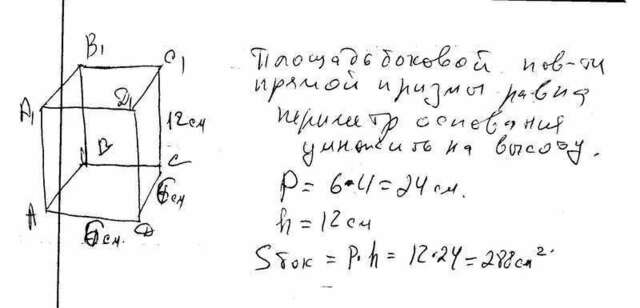 B₁
C₁
A₁
D₁
12см
B
C
6см
A
6см.
D
Площадь боковой пов-ти
прямой призмы равна
периметр основания
умножить на высоту.
P = 6·4 = 24 см.
h = 12 см
Sбок = P·h = 12·24 = 288 см²